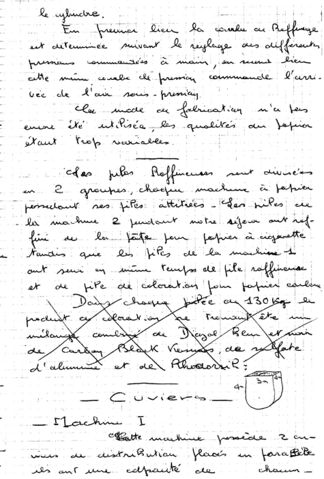 le cylindre.
En premier lieu la courbe de Raffinage
est determinée suivant le reglage des differentes
pressions commandées à main, en second lieu
cette même courbe de pression commande l'arri-
vée de l'air sous-pression.
Ce mode de fabrication n'a pas
encore été utilisée, les qualités du papier
étant trop variables.
Les piles Raffineuses sont divisées
en 2 groupes, chaque machine à papier
possedant ses piles attitrées. Les piles de
la machine 2 pendant notre séjour ont raf-
finé de la pâte pour papier à cigarette
tandis que les piles de la machine 1
ont servi en même temps de pile raffineuse
et de pile de coloration pour papier carbone
Dans chaque pilée de 130 Kg le
produit de coloration se trouvant être un
mélange combiné de Diazol Bleu et noir
de Carbon Black, de sulfate
d'alumine et de
— Cuviers —
— Machine I
Cette machine possède 2 cu-
viers de distribution placés en parallèle
ils ont une capacité de chacun